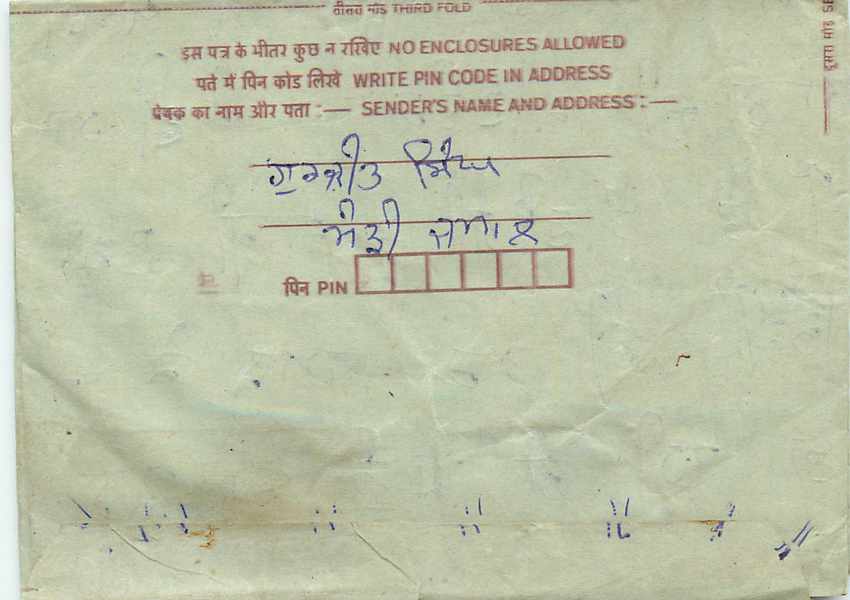 तीसरा मोड़ THIRD FOLD
इस पत्र के भीतर कुछ न रखिए NO ENCLOSURES ALLOWED
पते में पिन कोड लिखें WRITE PIN CODE IN ADDRESS
प्रेषक का नाम और पता :— SENDER'S NAME AND ADDRESS :—
ਗੁਰਜੀਤ ਸਿੰਘ
ਮੰਡੀ ਜਮਾਲ
पिन PIN
दूसरा मोड़